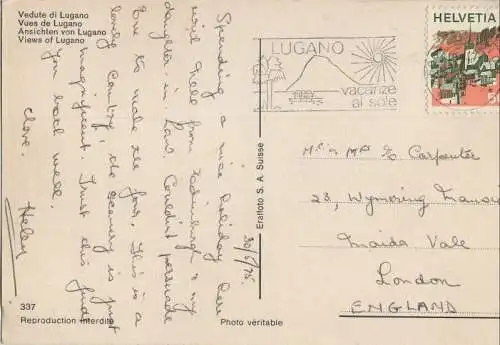 Vedute di Lugano
Vues de Lugano
Ansichten von Lugano
Views of Lugano
30/5/75.
Spending a nice holiday here
with Neee from Edinburgh & my
daughter-in-Law. Couldn't persuade
Eve to make the four. This is a
lovely country & the scenery is just
magnificent. Trust this finds
you both well.
Love.
Helen
337
Reproduction interdite
Photo véritable
Eralfoto S. A. Suisse
LUGANO
vacanze
al sole
HELVETIA
Mr & Mrs E Carpenter
23, Wymering Mansions
Maida Vale
London
ENGLAND